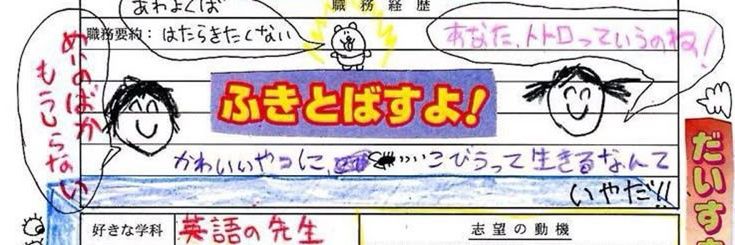 あわよくば
職務経歴
職務要約：はたらきたくない
あなた、トトロっていうのね！
めいのばか
もうしらない
ふきとばすよ！
かわいいやつに、
こびうって生きるなんて
いやだ!!
だいす
好きな学科
英語の先生
志望の動機